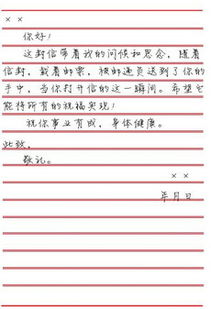 ××
你好!
这封信带着我的问候和思念,随着
信封,载着邮票,被邮递员送到了你的
手中,当你打开信的这一瞬间。希望它
能将所有的祝福实现!
祝你事业有成,身体健康。
此致,
敬礼。
××
年月日